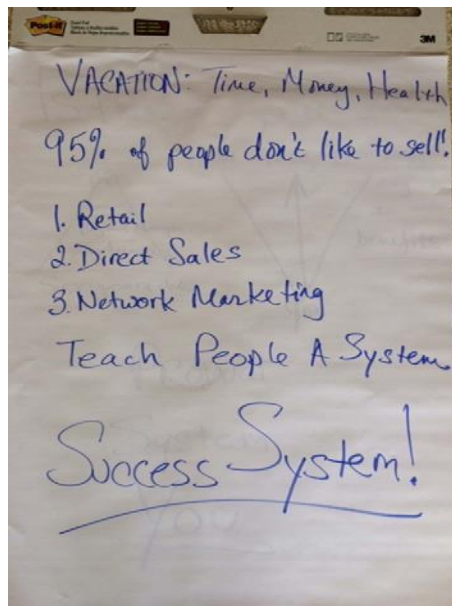 Post-it
3M
VACATION: Time, Money, Health
95% of people don't like to sell!
1. Retail
2. Direct Sales
3. Network Marketing
Teach People A System
Success System!